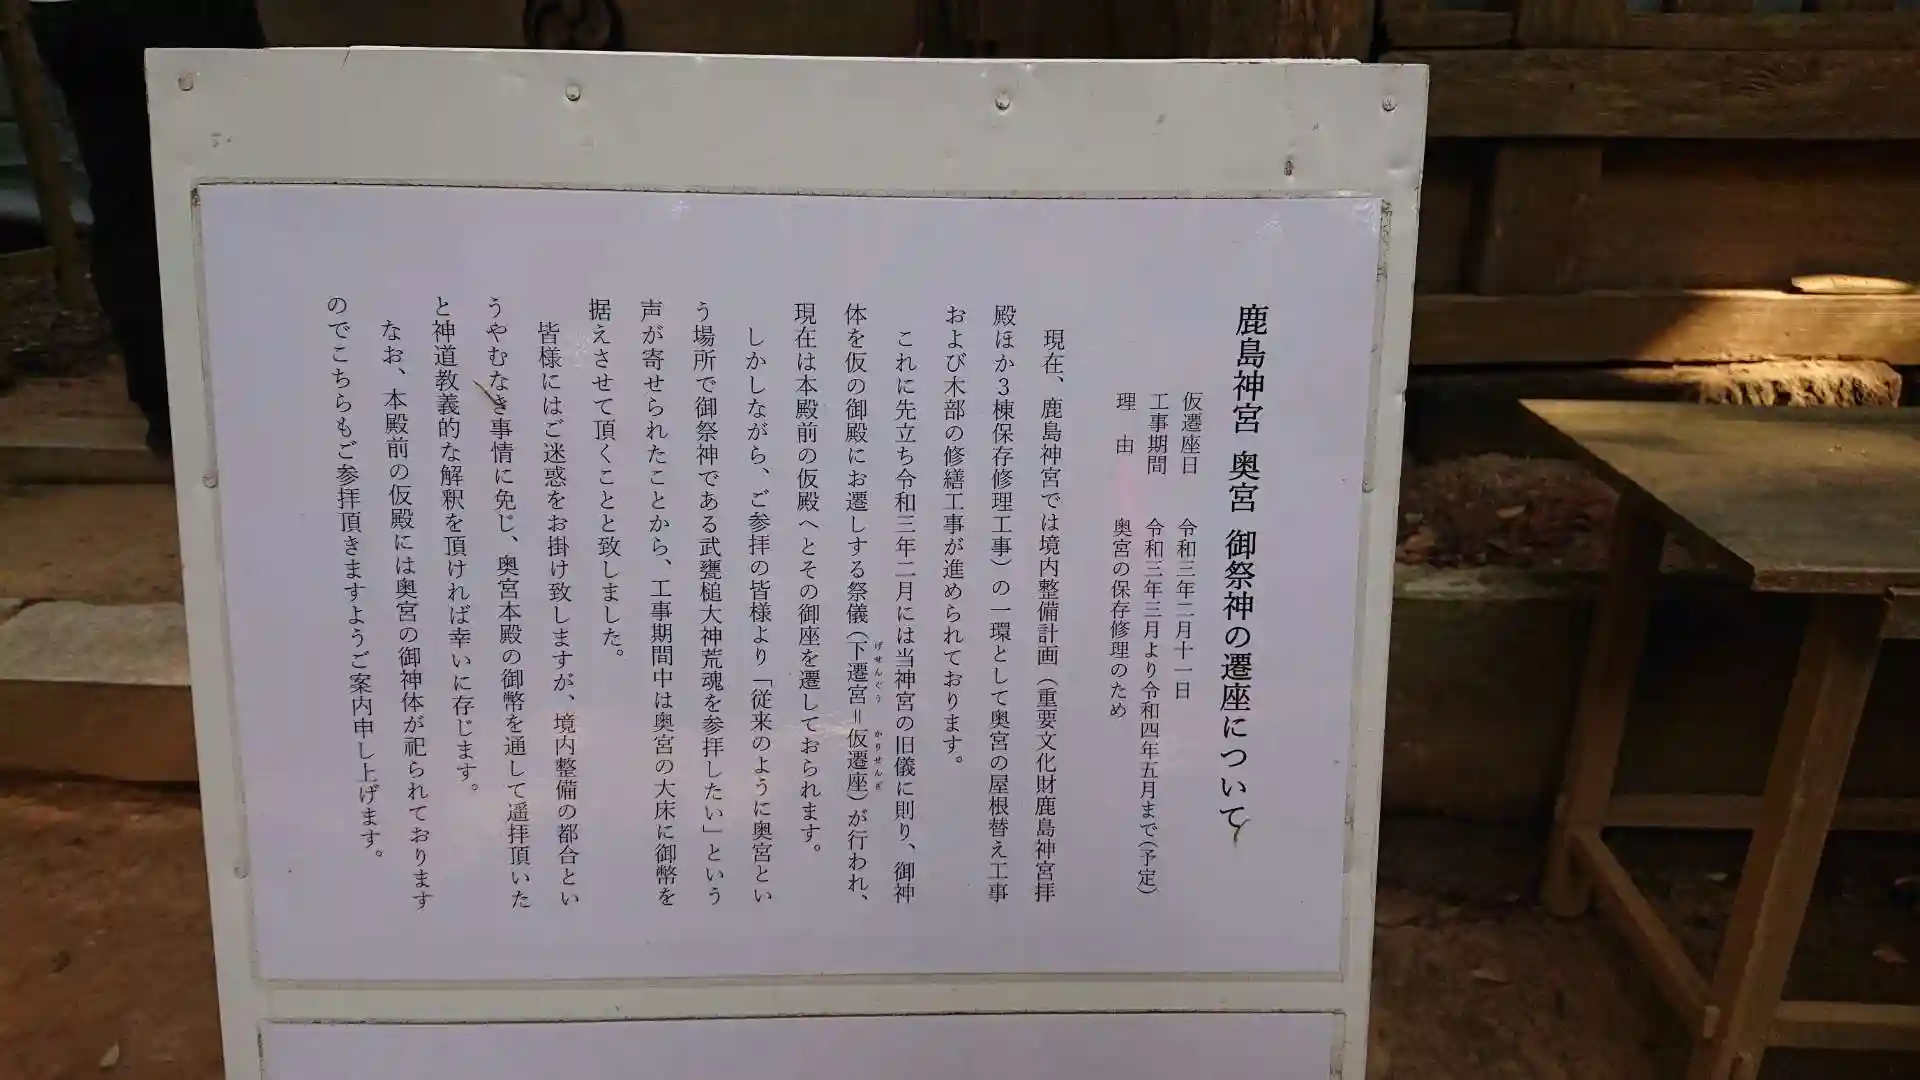 鹿島神宮 奥宮 御祭神の遷座について
仮遷座日 令和三年二月十一日
工事期間 令和三年三月より令和四年五月まで(予定)
理 由 奥宮の保存修理のため
現在、鹿島神宮では境内整備計画(重要文化財鹿島神宮拝
殿ほか3棟保存修理工事)の一環として奥宮の屋根替え工事
および木部の修繕工事が進められております。
これに先立ち令和三年二月には当神宮の旧儀に則り、御神
体を仮の御殿にお遷しする祭儀(下遷宮=仮遷座)が行われ、
げせんぐう かりせんざ
現在は本殿前の仮殿へとその御座を遷しておられます。
しかしながら、ご参拝の皆様より「従来のように奥宮とい
う場所で御祭神である武甕槌大神荒魂を参拝したい」という
声が寄せられたことから、工事期間中は奥宮の大床に御幣を
据えさせて頂くことと致しました。
皆様にはご迷惑をお掛け致しますが、境内整備の都合とい
うやむなき事情に免じ、奥宮本殿の御幣を通して遥拝頂いた
と神道教義的な解釈を頂ければ幸いに存じます。
なお、本殿前の仮殿には奥宮の御神体が祀られております
のでこちらもご参拝頂きますようご案内申し上げます。